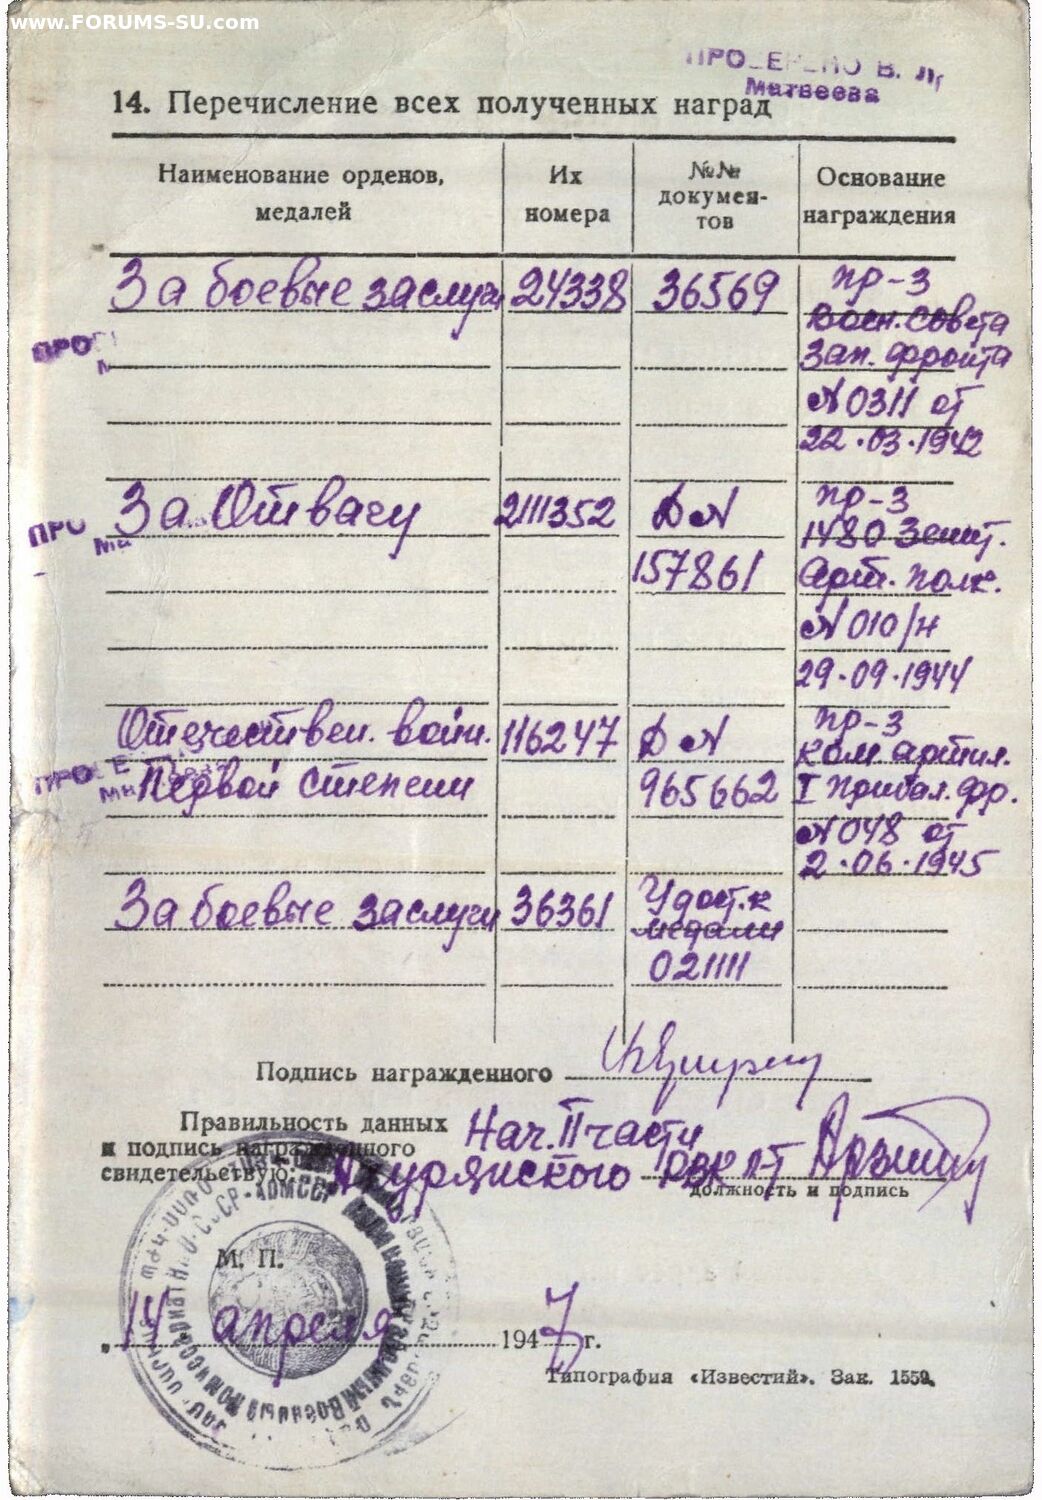 www.FORUMS-SU.com
ПРОВЕРЕНО В.
Матвеева
14. Перечисление всех полученных наград
Наименование орденов, медалей
Их номера
№№ докумен-тов
Основание награждения
За боевые заслуги 24338 36569 пр-з
Воен. Совета
Зап. фронта
№ 0311 от
22.03.1942
За Отвагу 2111352 Д № пр-з
1480 Зенит.
157861 Арт. полк.
№ 010/н
29.09.1944
Отечествен. войн. 116247 Д № пр-з
ком. артил.
Первой степени 965662 I Прибал. фр.
№ 048 от
2.06.1945
За боевые заслуги 36361 Удост. к
медали
021111
Подпись награжденного
Правильность данных
и подпись награжденного
свидетельствую:
Нач. II части
Ахурянского РВК л-т
должность и подпись
М. П.
14 апреля 1947 г.
Типография «Известий». Зак. 1559.